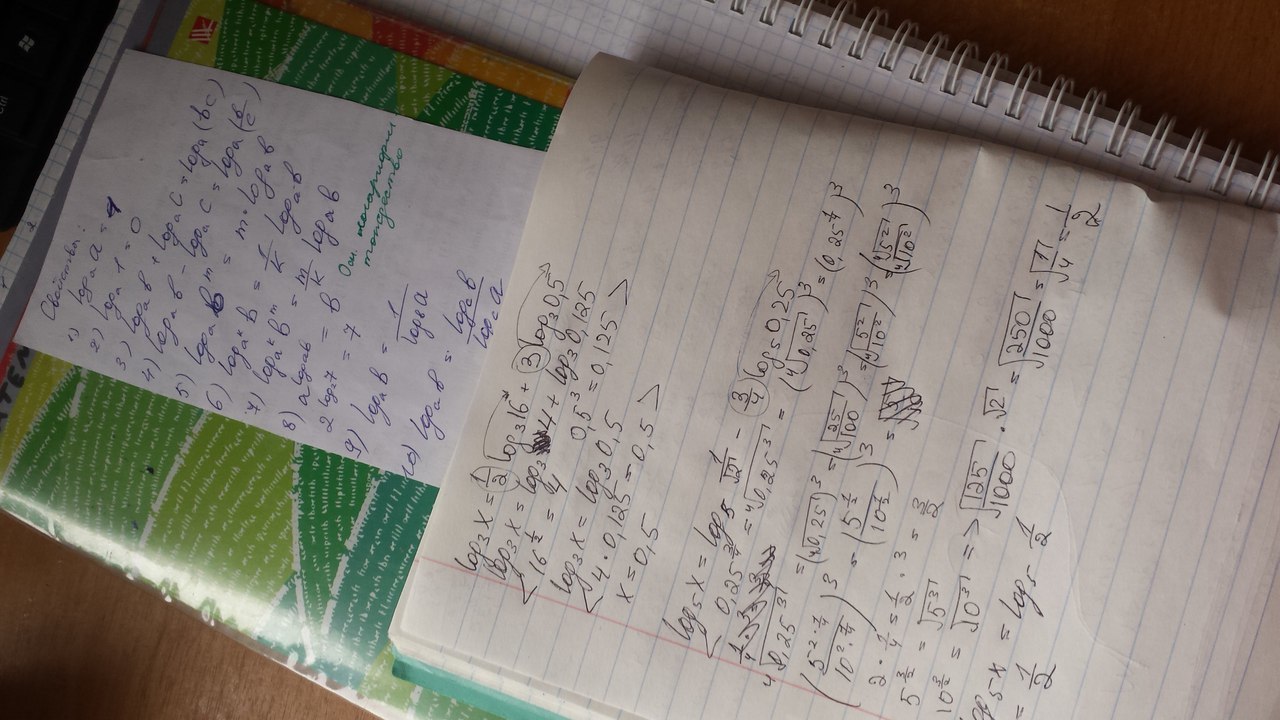 Свойства:
1) log_a a = 1
2) log_a 1 = 0
3) log_a b + log_a c = log_a (bc)
4) log_a b - log_a c = log_a (b/c)
5) log_a b^m = m · log_a b
6) log_a^k b = 1/k log_a b
7) log_a^k b^m = m/k log_a b
8) a^log_a b = b
2^log_2 7 = 7
Осн. логарифм.
тождество
9) log_a b = 1/log_b a
10) log_a b = log_c b/log_c a
log_3 x = 1/2 log_3 16 + 3 log_3 0,5
log_3 x = log_3 4 + log_3 0,125
<16^1/2 = 4 0,5^3 = 0,125>
log_3 x = log_3 0,5
<4 · 0,125 = 0,5>
x = 0,5
log_5 x = log_5 1/√2 - 3/4 log_5 0,25
<0,25^3/4 = ⁴√0,25^3 = (⁴√0,25)^3 = (0,25^1/4)^3
⁴√0,25^3 = (⁴√0,25)^3 = (⁴√25/100)^3 = (⁴√5^2/10^2)^3 = (⁴√5^2/⁴√10^2)^3
(5^2·1/4/10^2·1/4)^3 = (5^1/2/10^1/2)^3 =
2 · 1/4 = 1/2 · 3 = 3/2
5^3/2 = √5^3
10^3/2 = √10^3 => √125/√1000 · √2 = √250/√1000 = √1/4 = 1/2
log_5 x = log_5 1/2
= 1/2